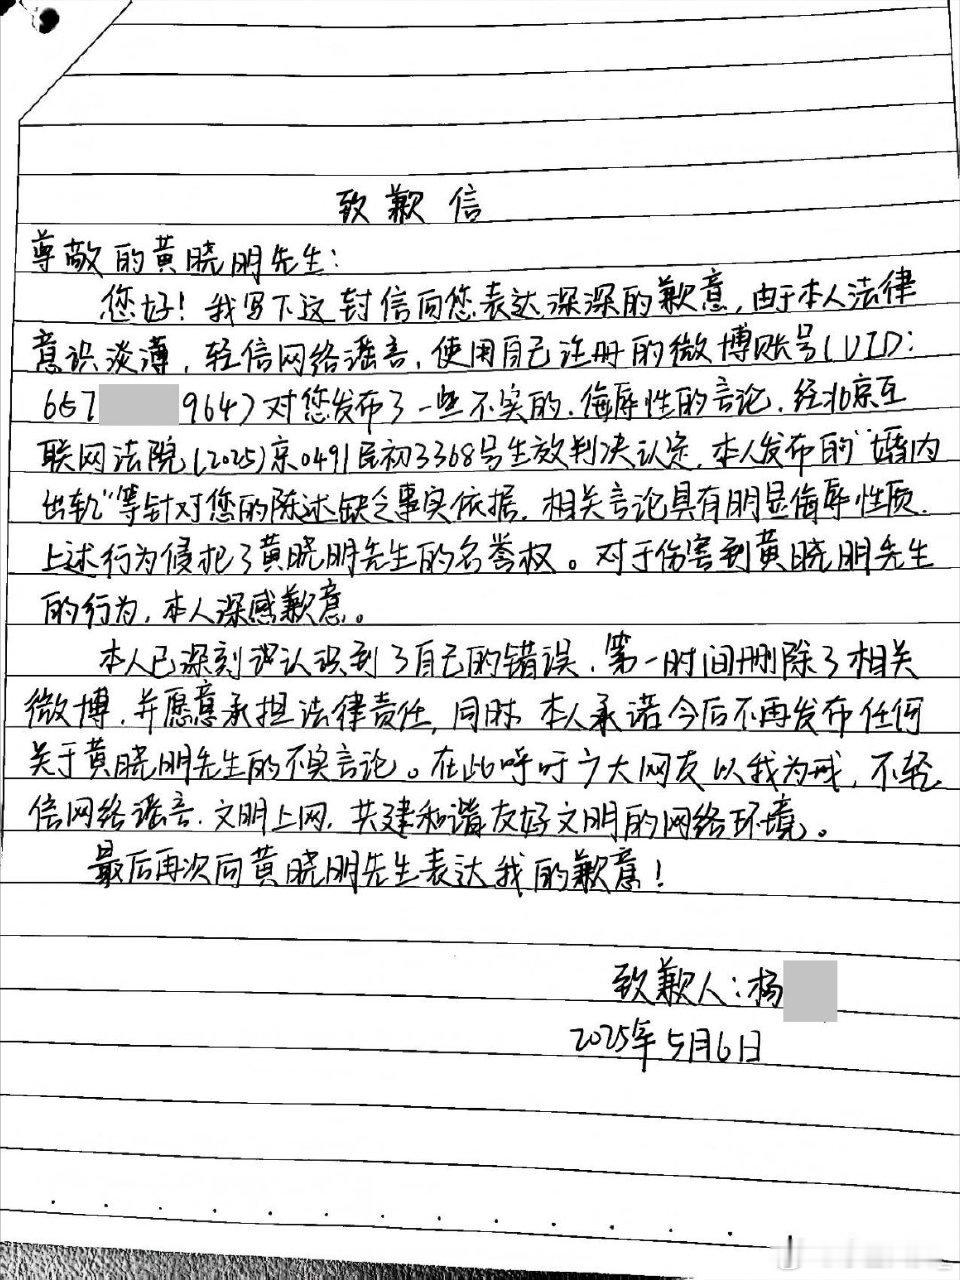 致歉信
尊敬的黄晓明先生：
您好！我写下这封信向您表达深深的歉意，由于本人法律
意识淡薄，轻信网络谣言，使用自己注册的微博账号（UID：
657 964）对您发布了一些不实的、侮辱性的言论，经北京互
联网法院（2025）京0491民初3368号生效判决认定，本人发布的“婚内
出轨”等针对您的陈述缺乏事实依据，相关言论具有明显侮辱性质，
上述行为侵犯了黄晓明先生的名誉权。对于伤害到黄晓明先生
的行为，本人深感歉意。
本人已深刻认识到了自己的错误，第一时间删除了相关
微博，并愿意承担法律责任，同时，本人承诺今后不再发布任何
关于黄晓明先生的不实言论。在此呼吁广大网友以我为戒，不轻
信网络谣言，文明上网，共建和谐友好文明的网络环境。
最后再次向黄晓明先生表达我的歉意！
致歉人：杨
2025年5月6日